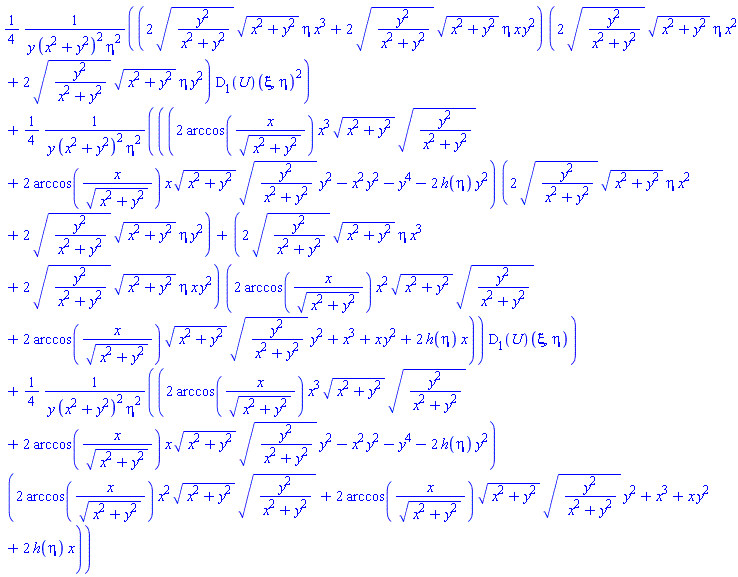 1/4 1/(y (x² + y²)² η²) ( ( (2 √(y²/(x² + y²)) √(x² + y²) η x³ + 2 √(y²/(x² + y²)) √(x² + y²) η x y² ) ( 2 √(y²/(x² + y²)) √(x² + y²) η x²
+ 2 √(y²/(x² + y²)) √(x² + y²) η y² ) D₁(U)(ξ, η)² )
+ 1/4 1/(y (x² + y²)² η²) ( ( ( 2 arccos( x/√(x² + y²) ) x³ √(x² + y²) √(y²/(x² + y²))
+ 2 arccos( x/√(x² + y²) ) x √(x² + y²) √(y²/(x² + y²)) y² − x² y² − y⁴ − 2 h(η) y² ) ( 2 √(y²/(x² + y²)) √(x² + y²) η x²
+ 2 √(y²/(x² + y²)) √(x² + y²) η y² ) + ( 2 √(y²/(x² + y²)) √(x² + y²) η x³
+ 2 √(y²/(x² + y²)) √(x² + y²) η x y² ) ( 2 arccos( x/√(x² + y²) ) x² √(x² + y²) √(y²/(x² + y²))
+ 2 arccos( x/√(x² + y²) ) √(x² + y²) √(y²/(x² + y²)) y² + x³ + x y² + 2 h(η) x ) ) D₁(U)(ξ, η) )
+ 1/4 1/(y (x² + y²)² η²) ( ( 2 arccos( x/√(x² + y²) ) x³ √(x² + y²) √(y²/(x² + y²))
+ 2 arccos( x/√(x² + y²) ) x √(x² + y²) √(y²/(x² + y²)) y² − x² y² − y⁴ − 2 h(η) y² )
( 2 arccos( x/√(x² + y²) ) x² √(x² + y²) √(y²/(x² + y²)) + 2 arccos( x/√(x² + y²) ) √(x² + y²) √(y²/(x² + y²)) y² + x³ + x y²
+ 2 h(η) x ) )